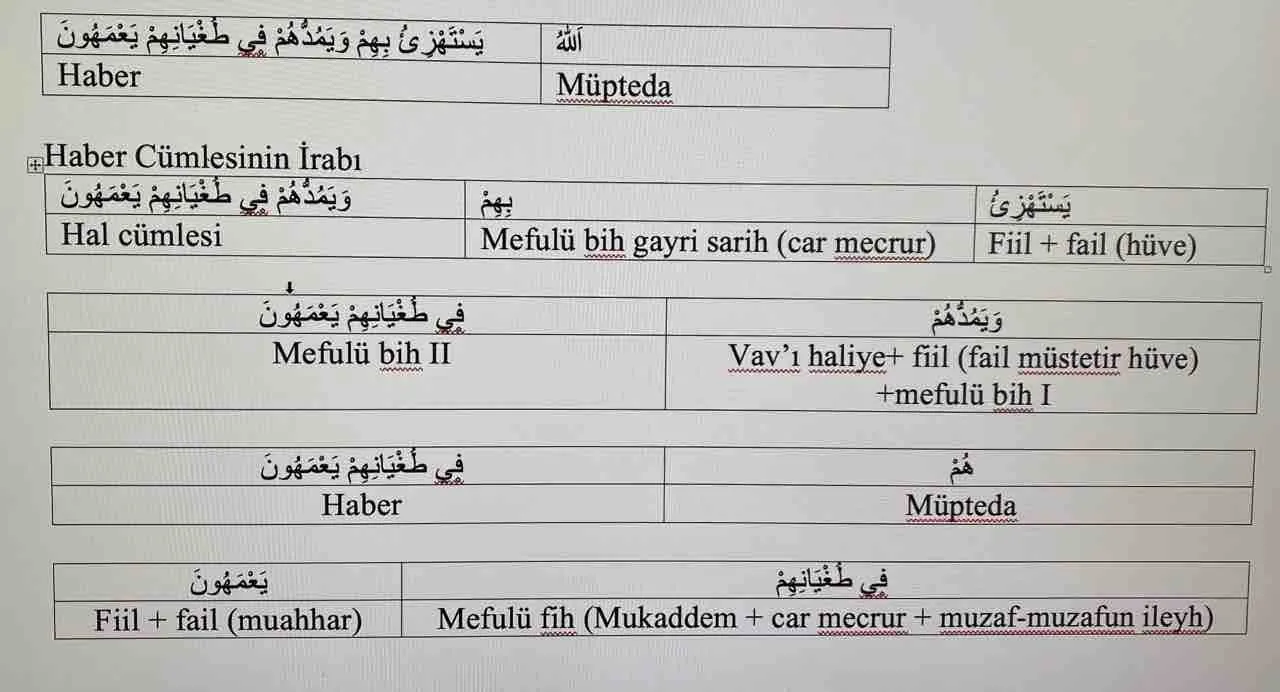 اَللّٰهُ يَسْتَهْزِئُ بِهِمْ وَيَمُدُّهُمْ فِي طُغْيَانِهِمْ يَعْمَهُونَ
Haber Müpteda
Haber Cümlesinin İrabı
يَسْتَهْزِئُ بِهِمْ وَيَمُدُّهُمْ فِي طُغْيَانِهِمْ يَعْمَهُونَ
Hal cümlesi Mefulü bih gayri sarih (car mecrur) Fiil + fail (hüve)
وَيَمُدُّهُمْ فِي طُغْيَانِهِمْ يَعْمَهُونَ
Mefulü bih II Vav’ı haliye+ fiil (fail müstetir hüve)
+mefulü bih I
هُمْ فِي طُغْيَانِهِمْ يَعْمَهُونَ
Haber Müpteda
فِي طُغْيَانِهِمْ يَعْمَهُونَ
Fiil + fail (muahhar) Mefulü fih (Mukaddem + car mecrur + muzaf-muzafun ileyh)